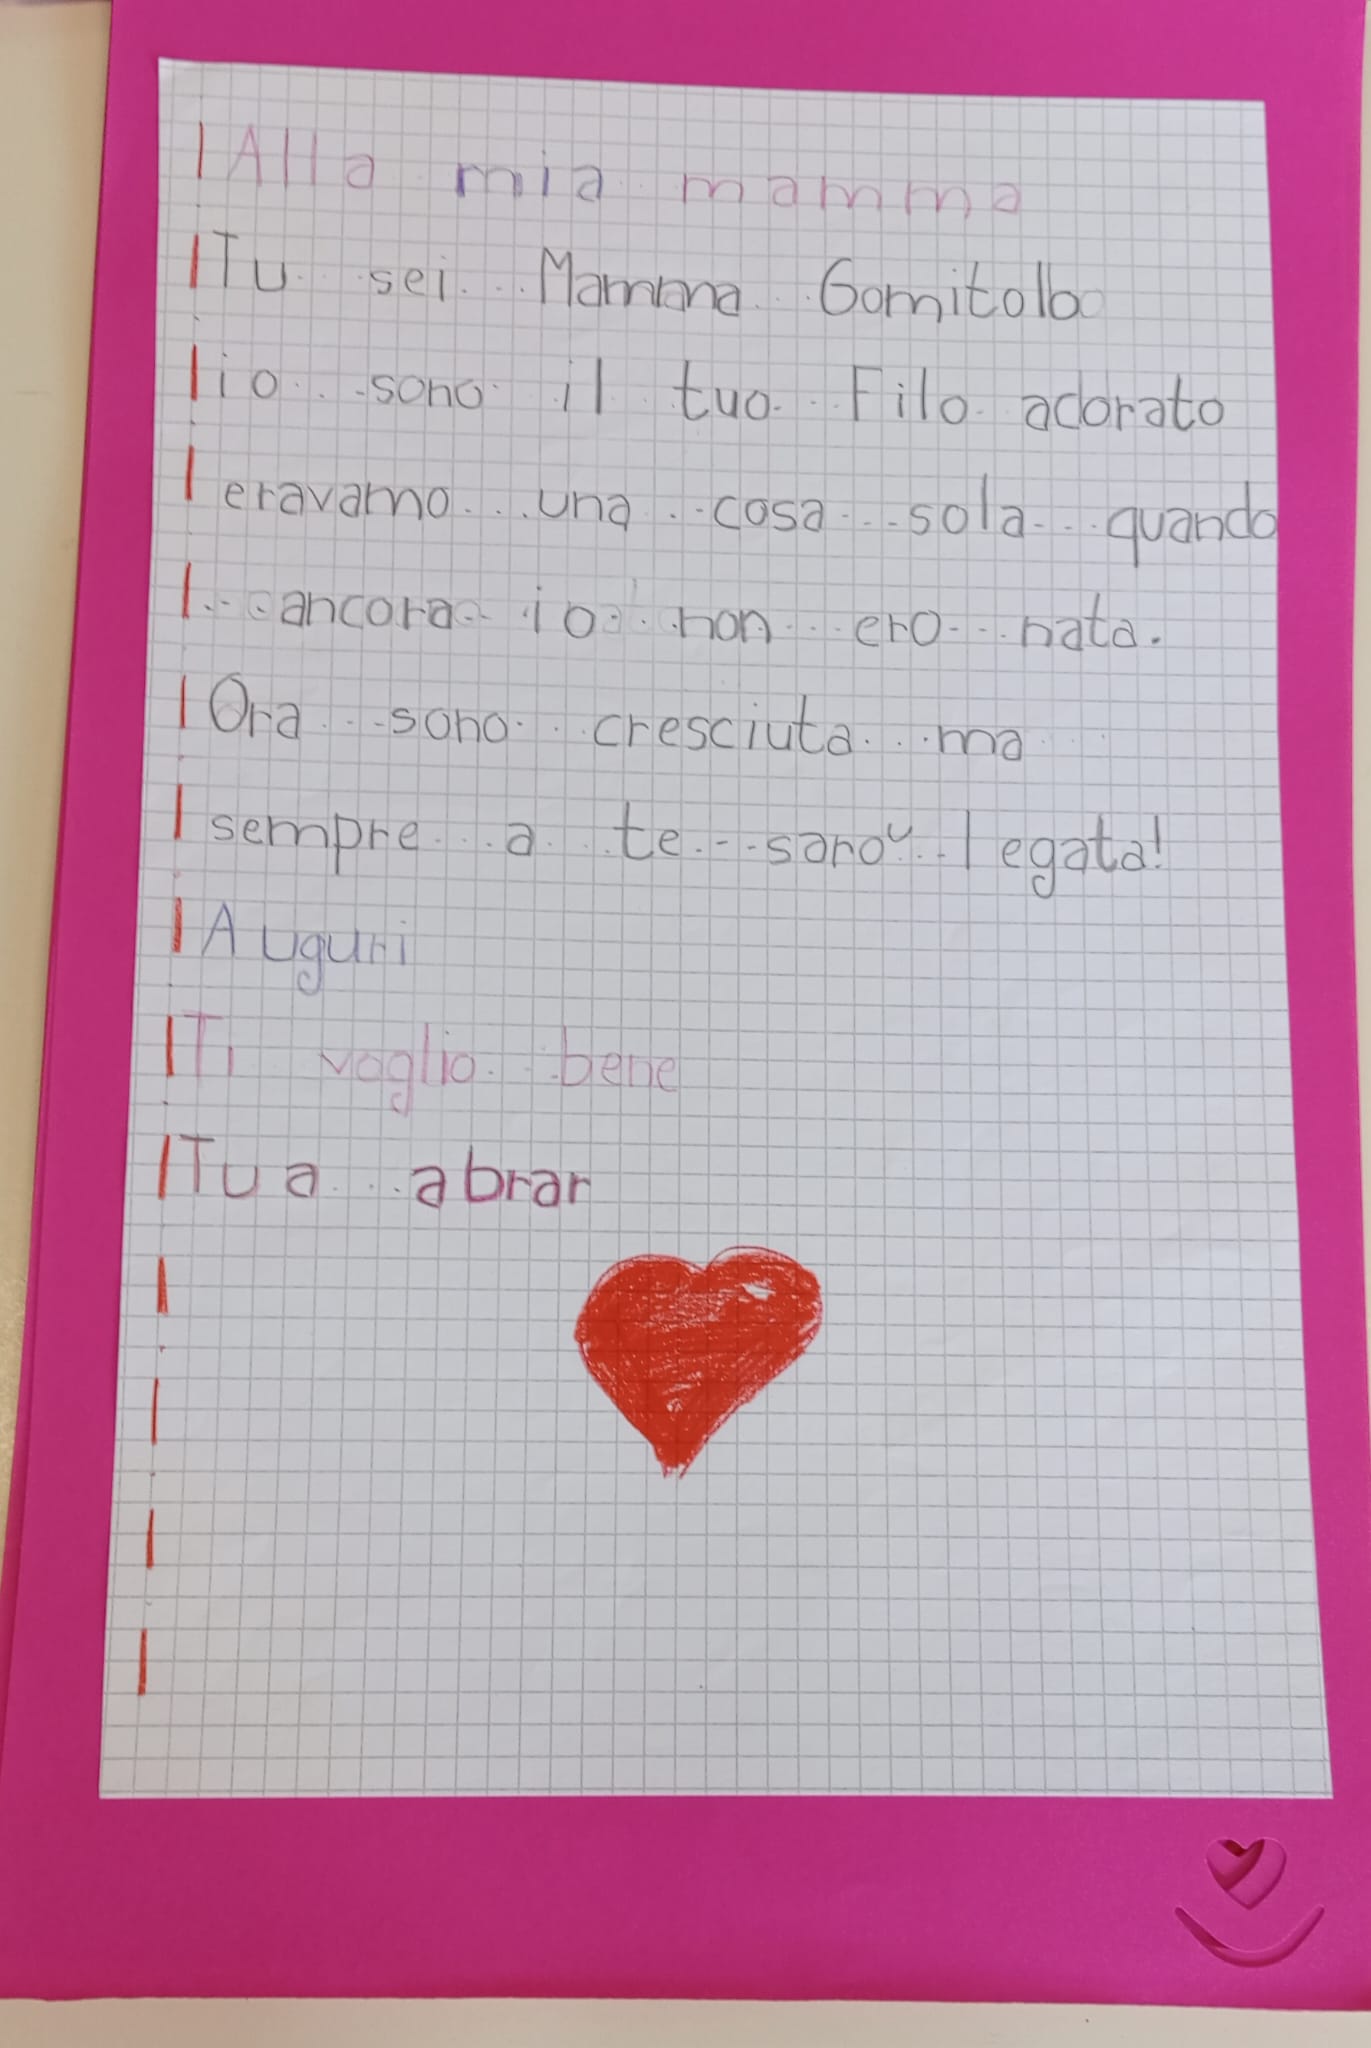 Alla mia mamma
Tu sei Mamma Gomitolo
io sono il tuo Filo adorato
eravamo una cosa sola quando
ancora io non ero nata.
Ora sono cresciuta ma
sempre a te sarò legata!
Auguri
Ti voglio bene
Tua abrar